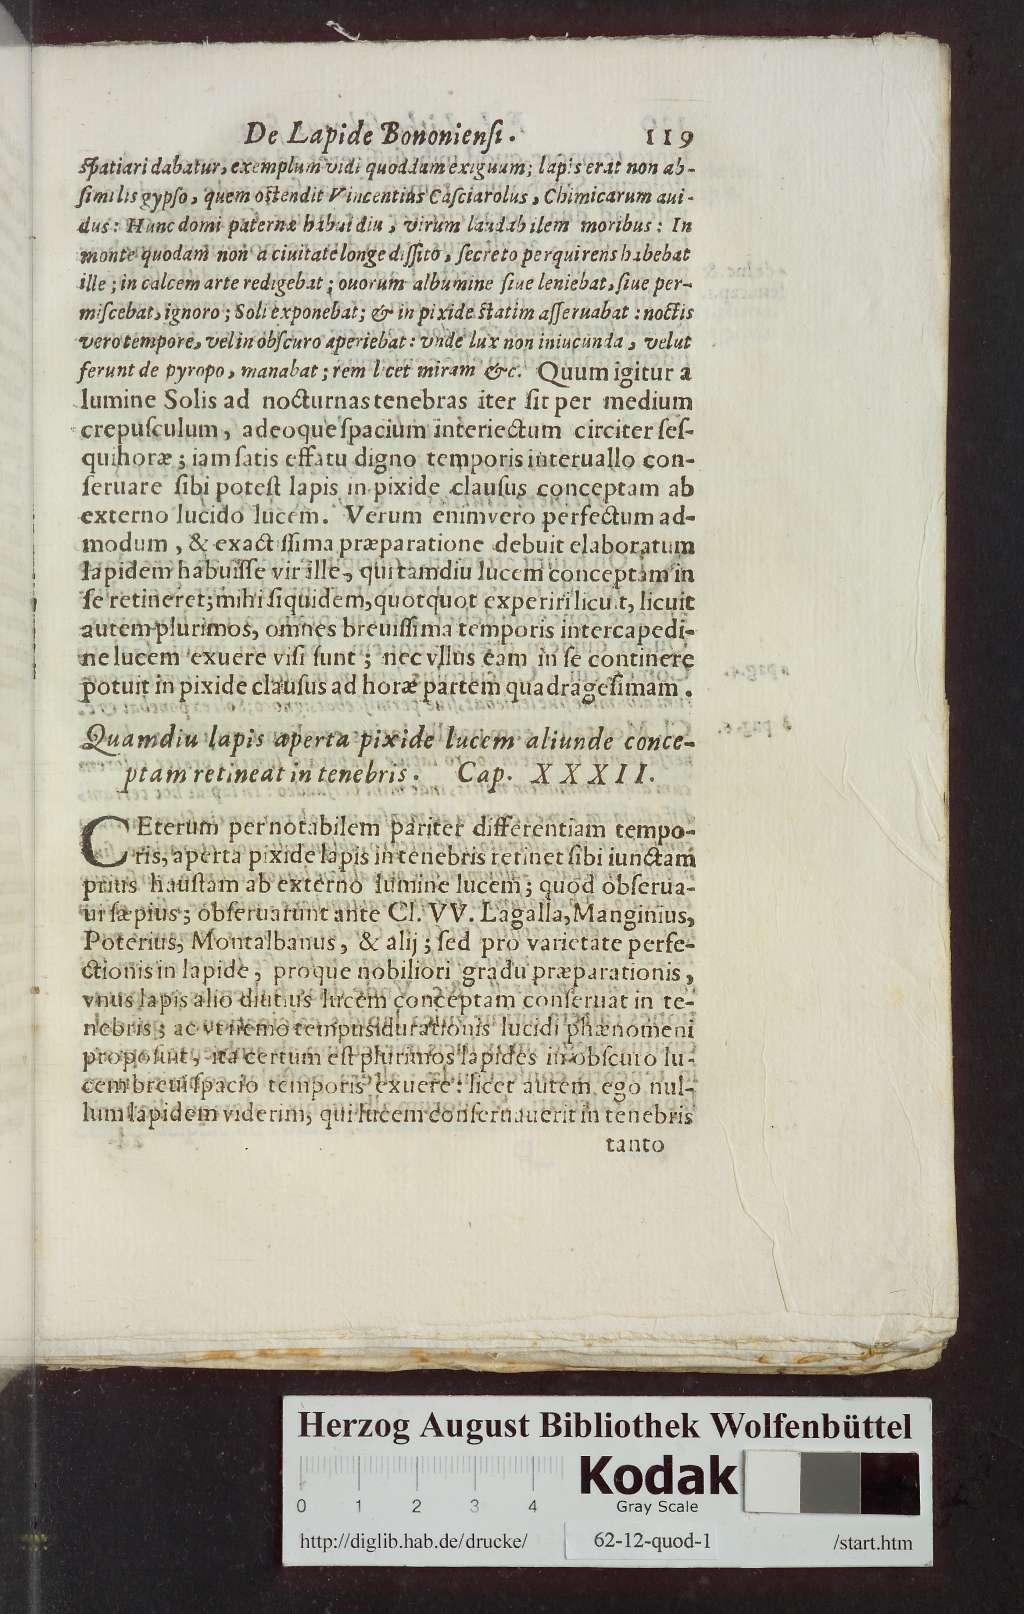 De Lapide Bononienſi. 119
ſpatiari dabatur, exemplum vidi quoddam exiguum; lapis erat non ab-
ſimilis gypſo, quem oſtendit Vincentius Caſciarolus, Chimicarum aui-
dus: Hunc domi paternæ habui diu, virum laudabilem moribus: In
monte quodam non a ciuitate longe diſſito, ſecreto perquirens habebat
ille; in calcem arte redigebat; ouorum albumine ſiue leniebat, ſiue per-
miſcebat, ignoro; Soli exponebat; & in pixide ſtatim aſſeruabat: noctis
vero tempore, vel in obſcuro aperiebat: vnde lux non iniucunda, velut
ferunt de pyropo, manabat; rem l cet miram &c. Quum igitur a
lumine Solis ad nocturnas tenebras iter ſit per medium
crepuſculum, adeoque ſpacium interiectum circiter ſeſ-
quihoræ; iam ſatis effatu digno temporis interuallo con-
ſeruare ſibi poteſt lapis in pixide clauſus conceptam ab
externo lucido lucem. Verum enimvero perfectum ad-
modum, & exact ſſima præparatione debuit elaboratum
lapidem habuiſſe vir ille, qui tamdiu lucem conceptam in
ſe retineret; mihi ſiquidem, quotquot experiri licu t, licuit
autem plurimos, omnes breuiſſima temporis intercapedi-
ne lucem exuere viſi ſunt; nec vllus eam in ſe continere
potuit in pixide clauſus ad horæ partem quadrageſimam.
Quamdiu lapis aperta pixide lucem aliunde conce-
ptam retineat in tenebris. Cap. XXXII.
CEterum pernotabilem pariter differentiam tempo-
ris, aperta pixide lapis in tenebris retinet ſibi iunctam
prius hauſtam ab externo lumine lucem; quod obſerua-
ui ſæpius; obſeruarunt ante Cl. VV. Lagalla, Manginius,
Poterius, Montalbanus, & alij; ſed pro varietate perfe-
ctionis in lapide, proque nobiliori gradu præparationis,
vnus lapis alio diutius lucem conceptam conſeruat in te-
nebris; ac vt nemo tempus durationis lucidi phænomeni
propoſuit, ita certum eſt plurimos lapides in obſcuro lu-
cem breui ſpacio temporis exuere: licet autem ego nul-
lum lapidem viderim, qui lucem conſeruauerit in tenebris
tanto
Herzog August Bibliothek Wolfenbüttel
Kodak
Gray Scale
0 1 2 3 4
http://diglib.hab.de/drucke/ 62-12-quod-1 /start.htm